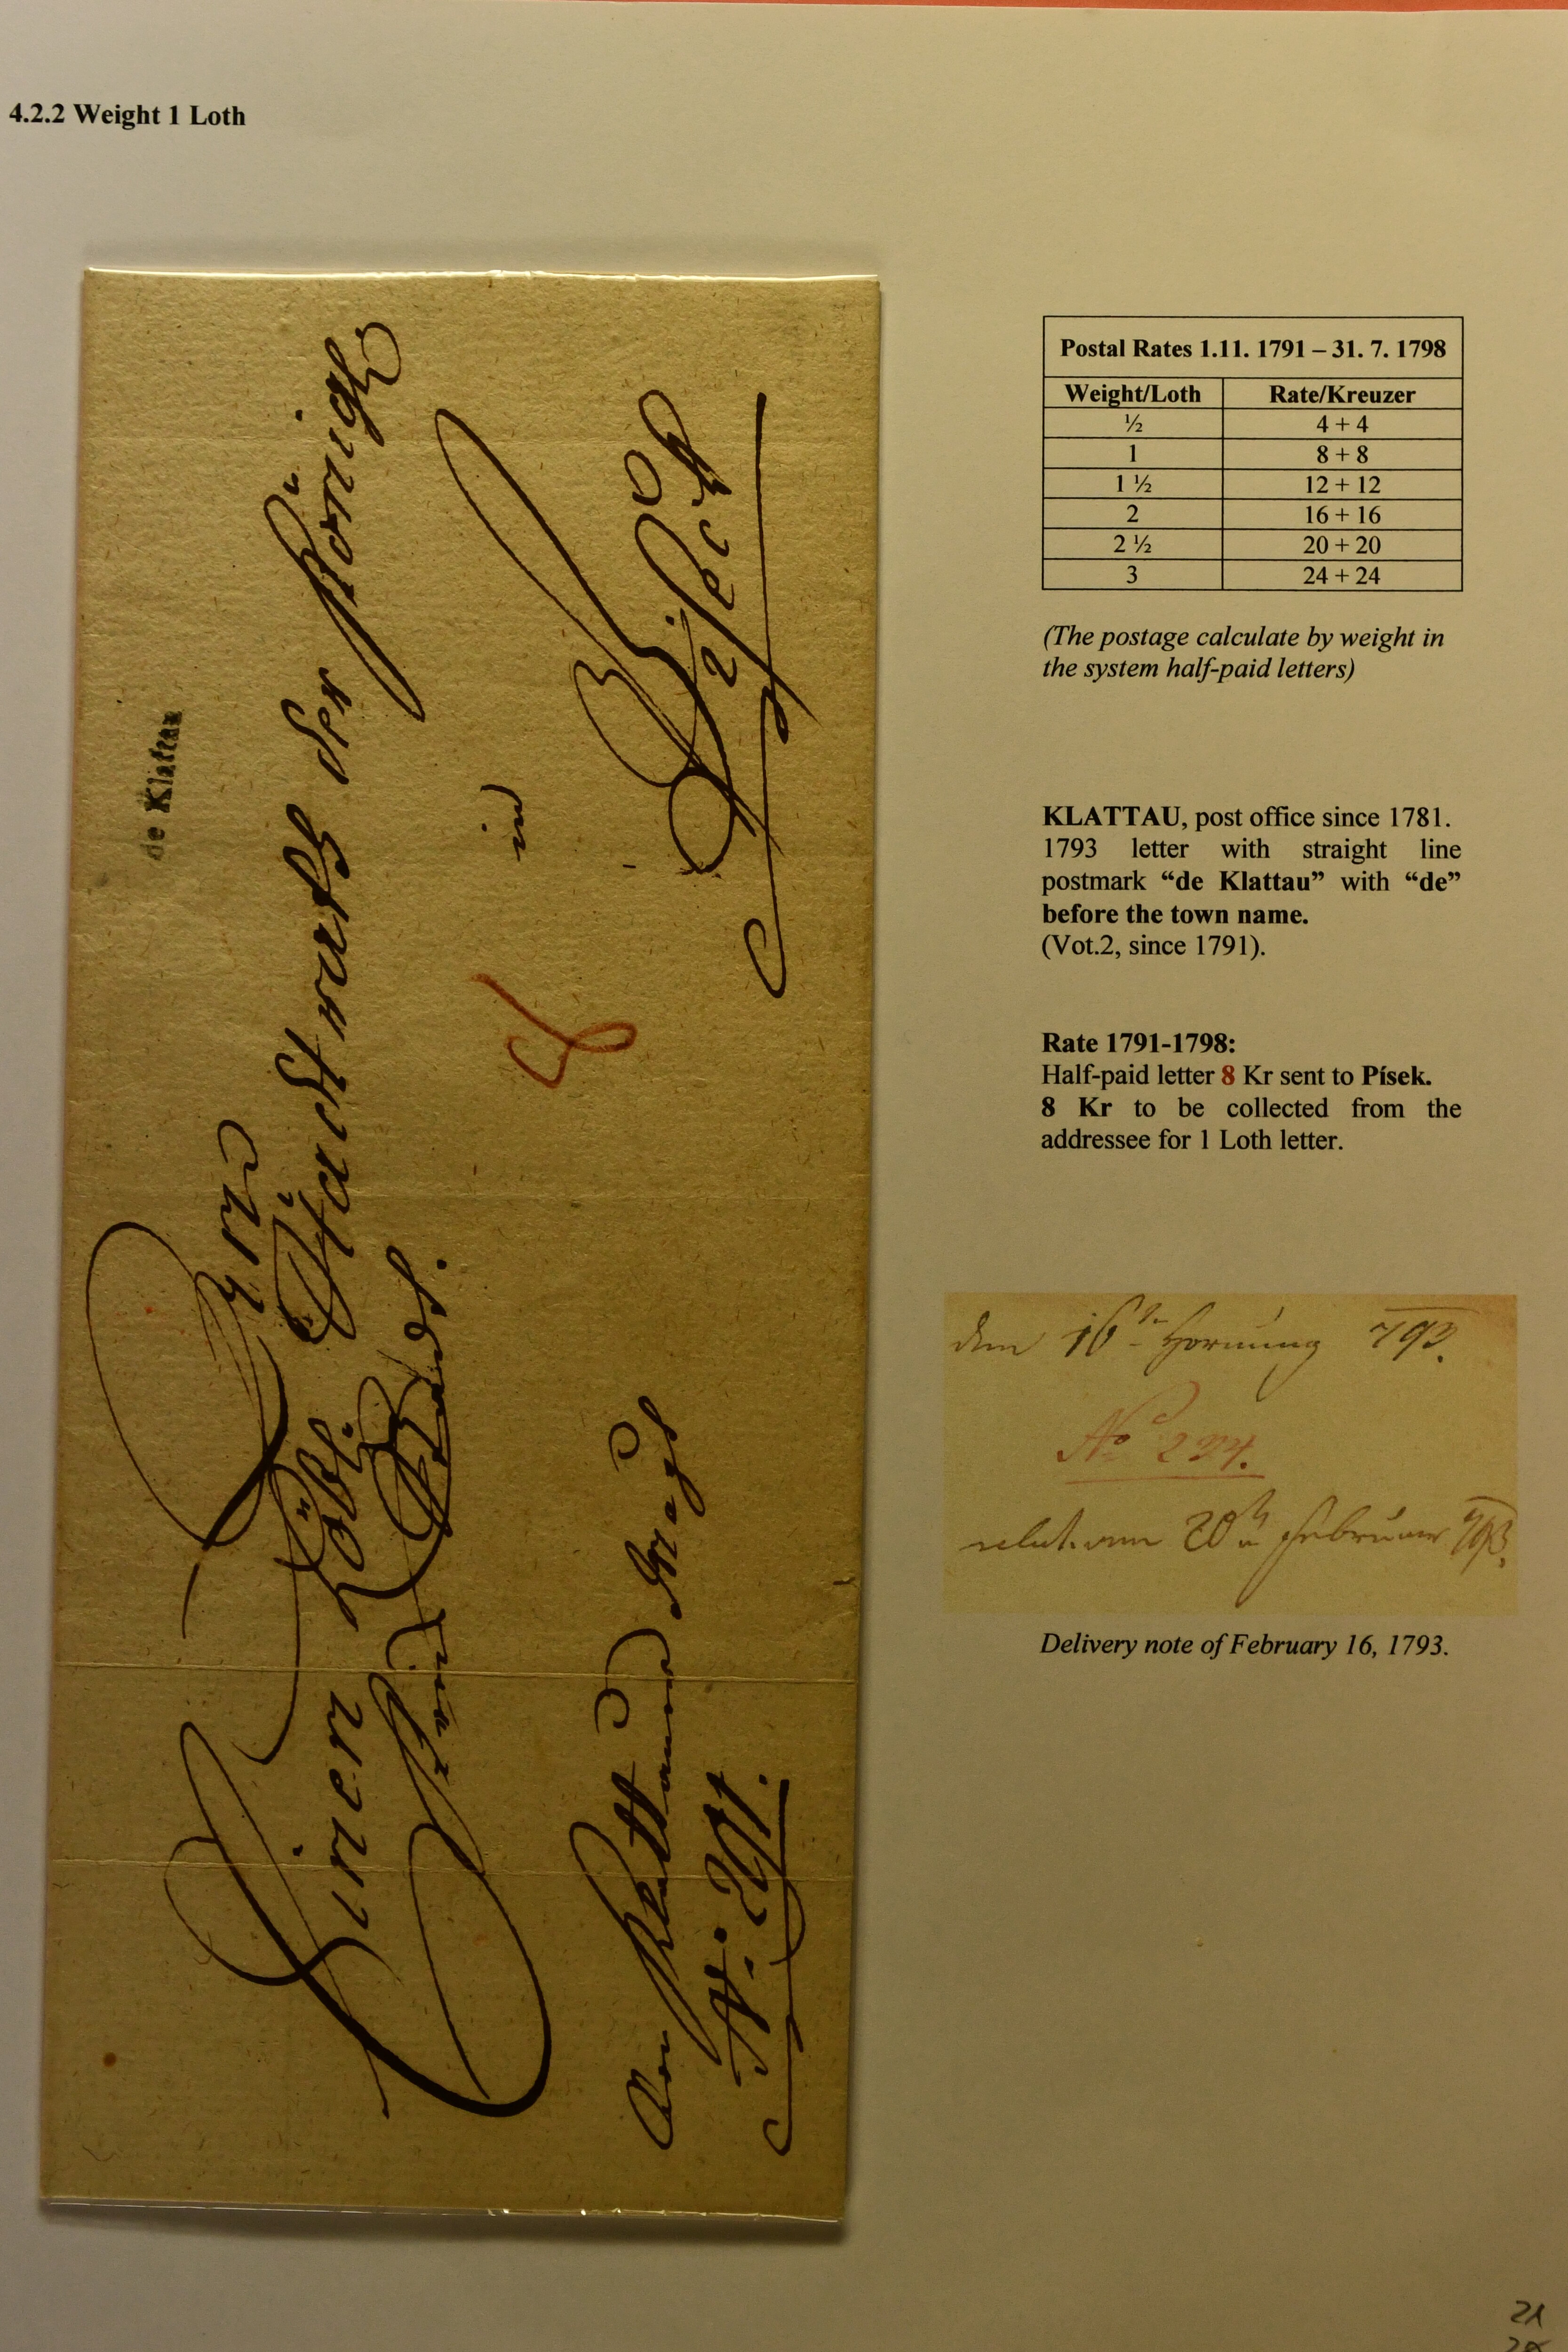 4.2.2 Weight 1 Loth
de Klattau
Von
Einem Löbl:
der königl
in
Pisek
8
Von Klattauer Mag
Postal Rates 1.11. 1791 – 31. 7. 1798
Weight/Loth Rate/Kreuzer
½ 4 + 4
1 8 + 8
1 ½ 12 + 12
2 16 + 16
2 ½ 20 + 20
3 24 + 24
(The postage calculate by weight in
the system half-paid letters)
KLATTAU, post office since 1781.
1793 letter with straight line
postmark “de Klattau” with “de”
before the town name.
(Vot.2, since 1791).
Rate 1791-1798:
Half-paid letter 8 Kr sent to Písek.
8 Kr to be collected from the
addressee for 1 Loth letter.
den 16t Hornung 793.
No 224.
20 Februar 793.
Delivery note of February 16, 1793.
21